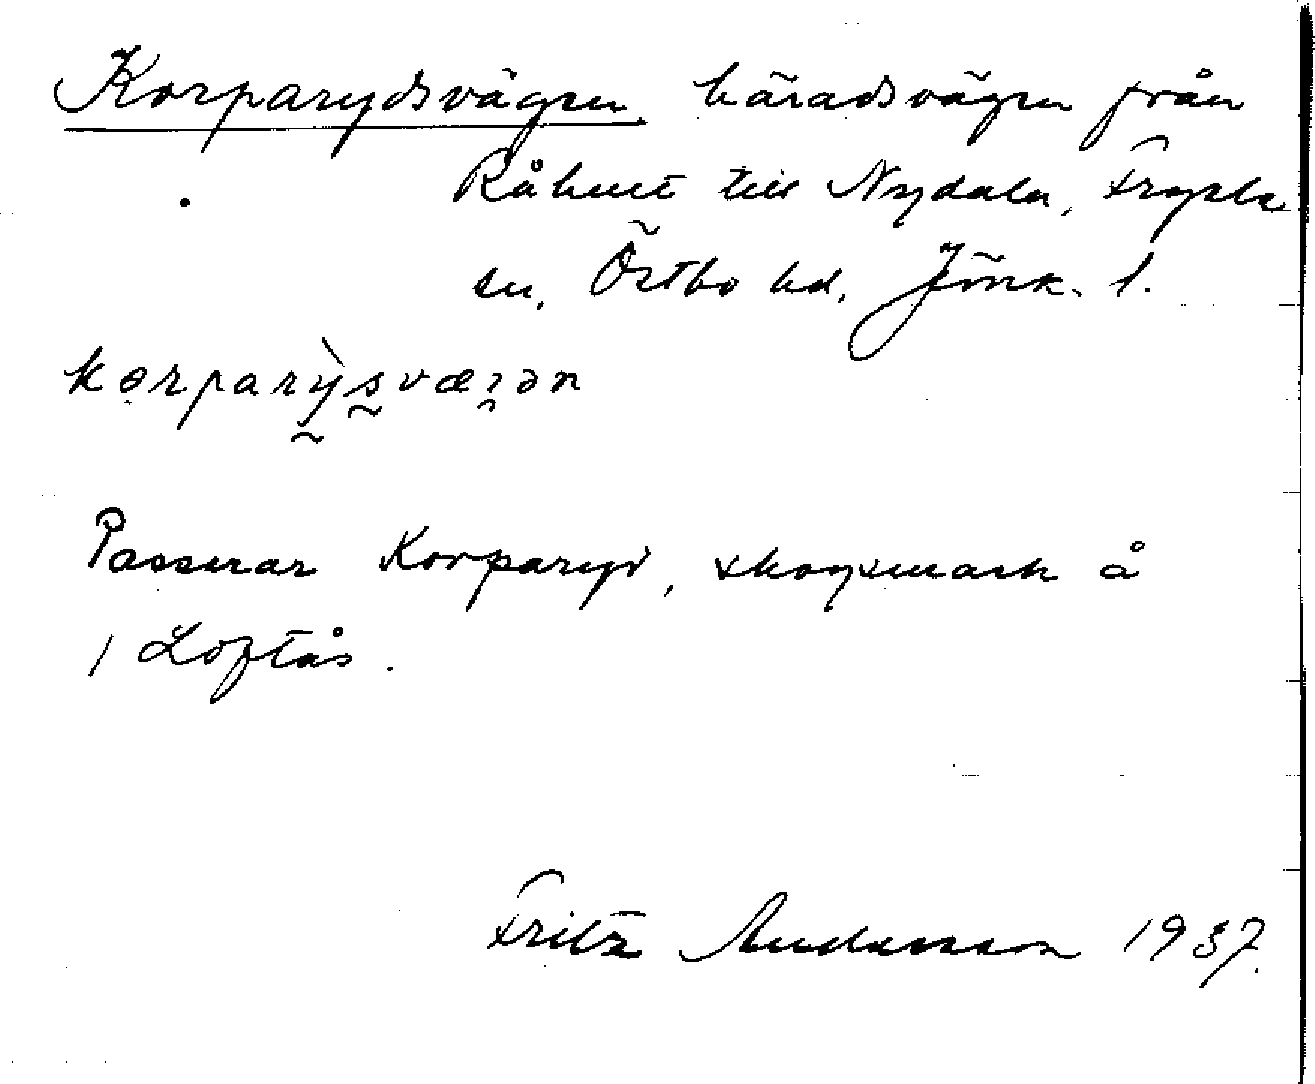 Korparydsvägen, häradsvägen från
Råhult till Nydala, Fryele
sn, Östbo hd, Jönk. l.
kɵrparỳsvæɡən
Passerar Korparyd, skogsmark å
1 Loftås.
Fritz Andersson 1937.